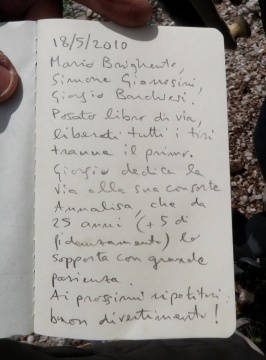 18/5/2010
Mario Brighente,
Simone Gianesini,
Giorgio Barchesi.
Posato libro di via,
liberati tutti i tiri
tranne il primo.
Giorgio dedica la
via alla sua consorte
Annalisa, che da
25 anni (+5 di
fidanzamento) lo
sopporta con grande
pazienza.
Ai prossimi ripetitori:
buon divertimento!